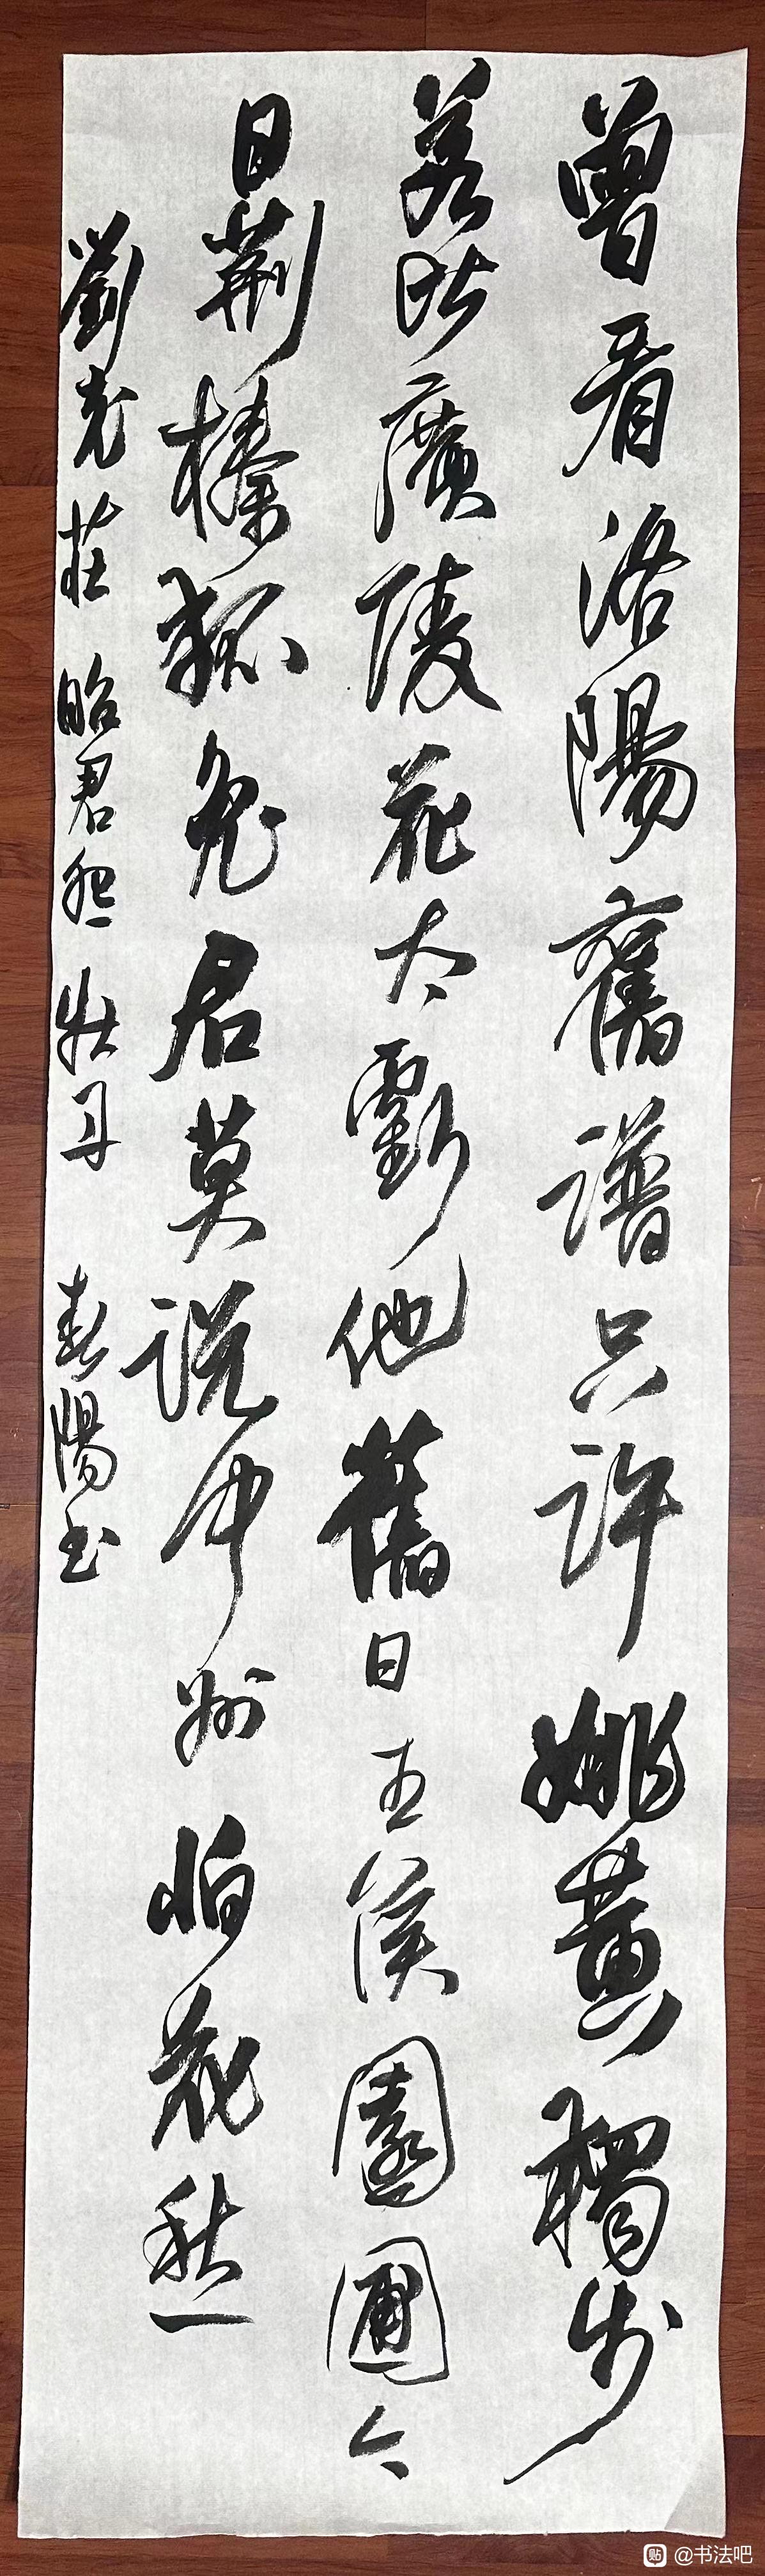 曾看洛陽舊譜只許姚黄獨步
若比廣陵花太虧他舊日王侯園圃今
日荆榛狐兔君莫說中州怕花愁
劉克莊 昭君怨 牡丹 春陽书
@书法吧